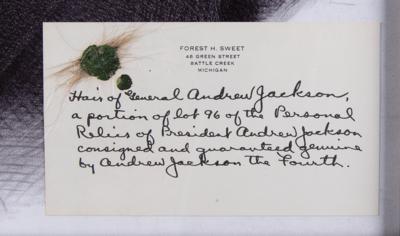 FOREST H. SWEET
46 GREEN STREET
BATTLE CREEK
MICHIGAN
Hair of General Andrew Jackson,
a portion of lot 96 of the Personal
Relics of President Andrew Jackson
consigned and guaranteed genuine
by Andrew Jackson the Fourth.